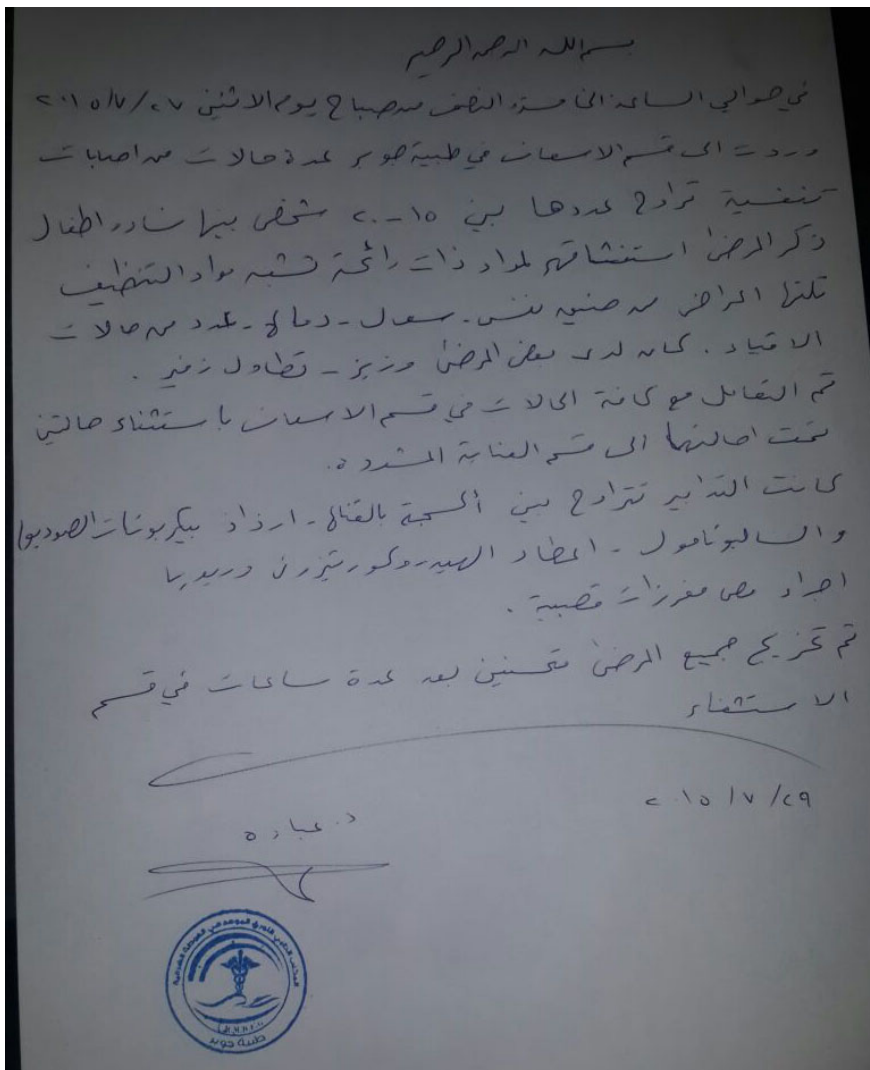 بسم الله الرحمن الرحيم
في حوالي الساعة الخامسة والنصف من صباح يوم الاثنين ٢٠١٥/٧/٢٧
وردت الى قسم الاسعاف في طبية جوبر عدة حالات من اصابات
تنفسية تراوح عددها بين ١٥-٢٠ شخص بينها نساء و اطفال
ذكر المرضى استنشاقهم لمواد ذات رائحة تشبه مواد التنظيف
تلتها اعراض من ضيق تنفس - سعال - دماع - عدد من حالات
الاقياء . كان لدى بعض المرضى وزيز - تطاول زفير .
تم التعامل مع كافة الحالات في قسم الاسعاف باستثناء حالتين
تمت احالتهما الى قسم العناية المشددة .
كانت التدابير تتراوح بين أكسجة بالقناع - ارذاذ بيكربونات الصوديوم
و السالبوتامول - اعطاء الهيدروكورتيزون وريديا
اجراء مص مفرزات قصبية .
تم تخريج جميع المرضى متحسنين بعد عدة ساعات في قسم
الاستشفاء
٢٠١٥/٧/٢٩
د. عباده
طبية جوبر